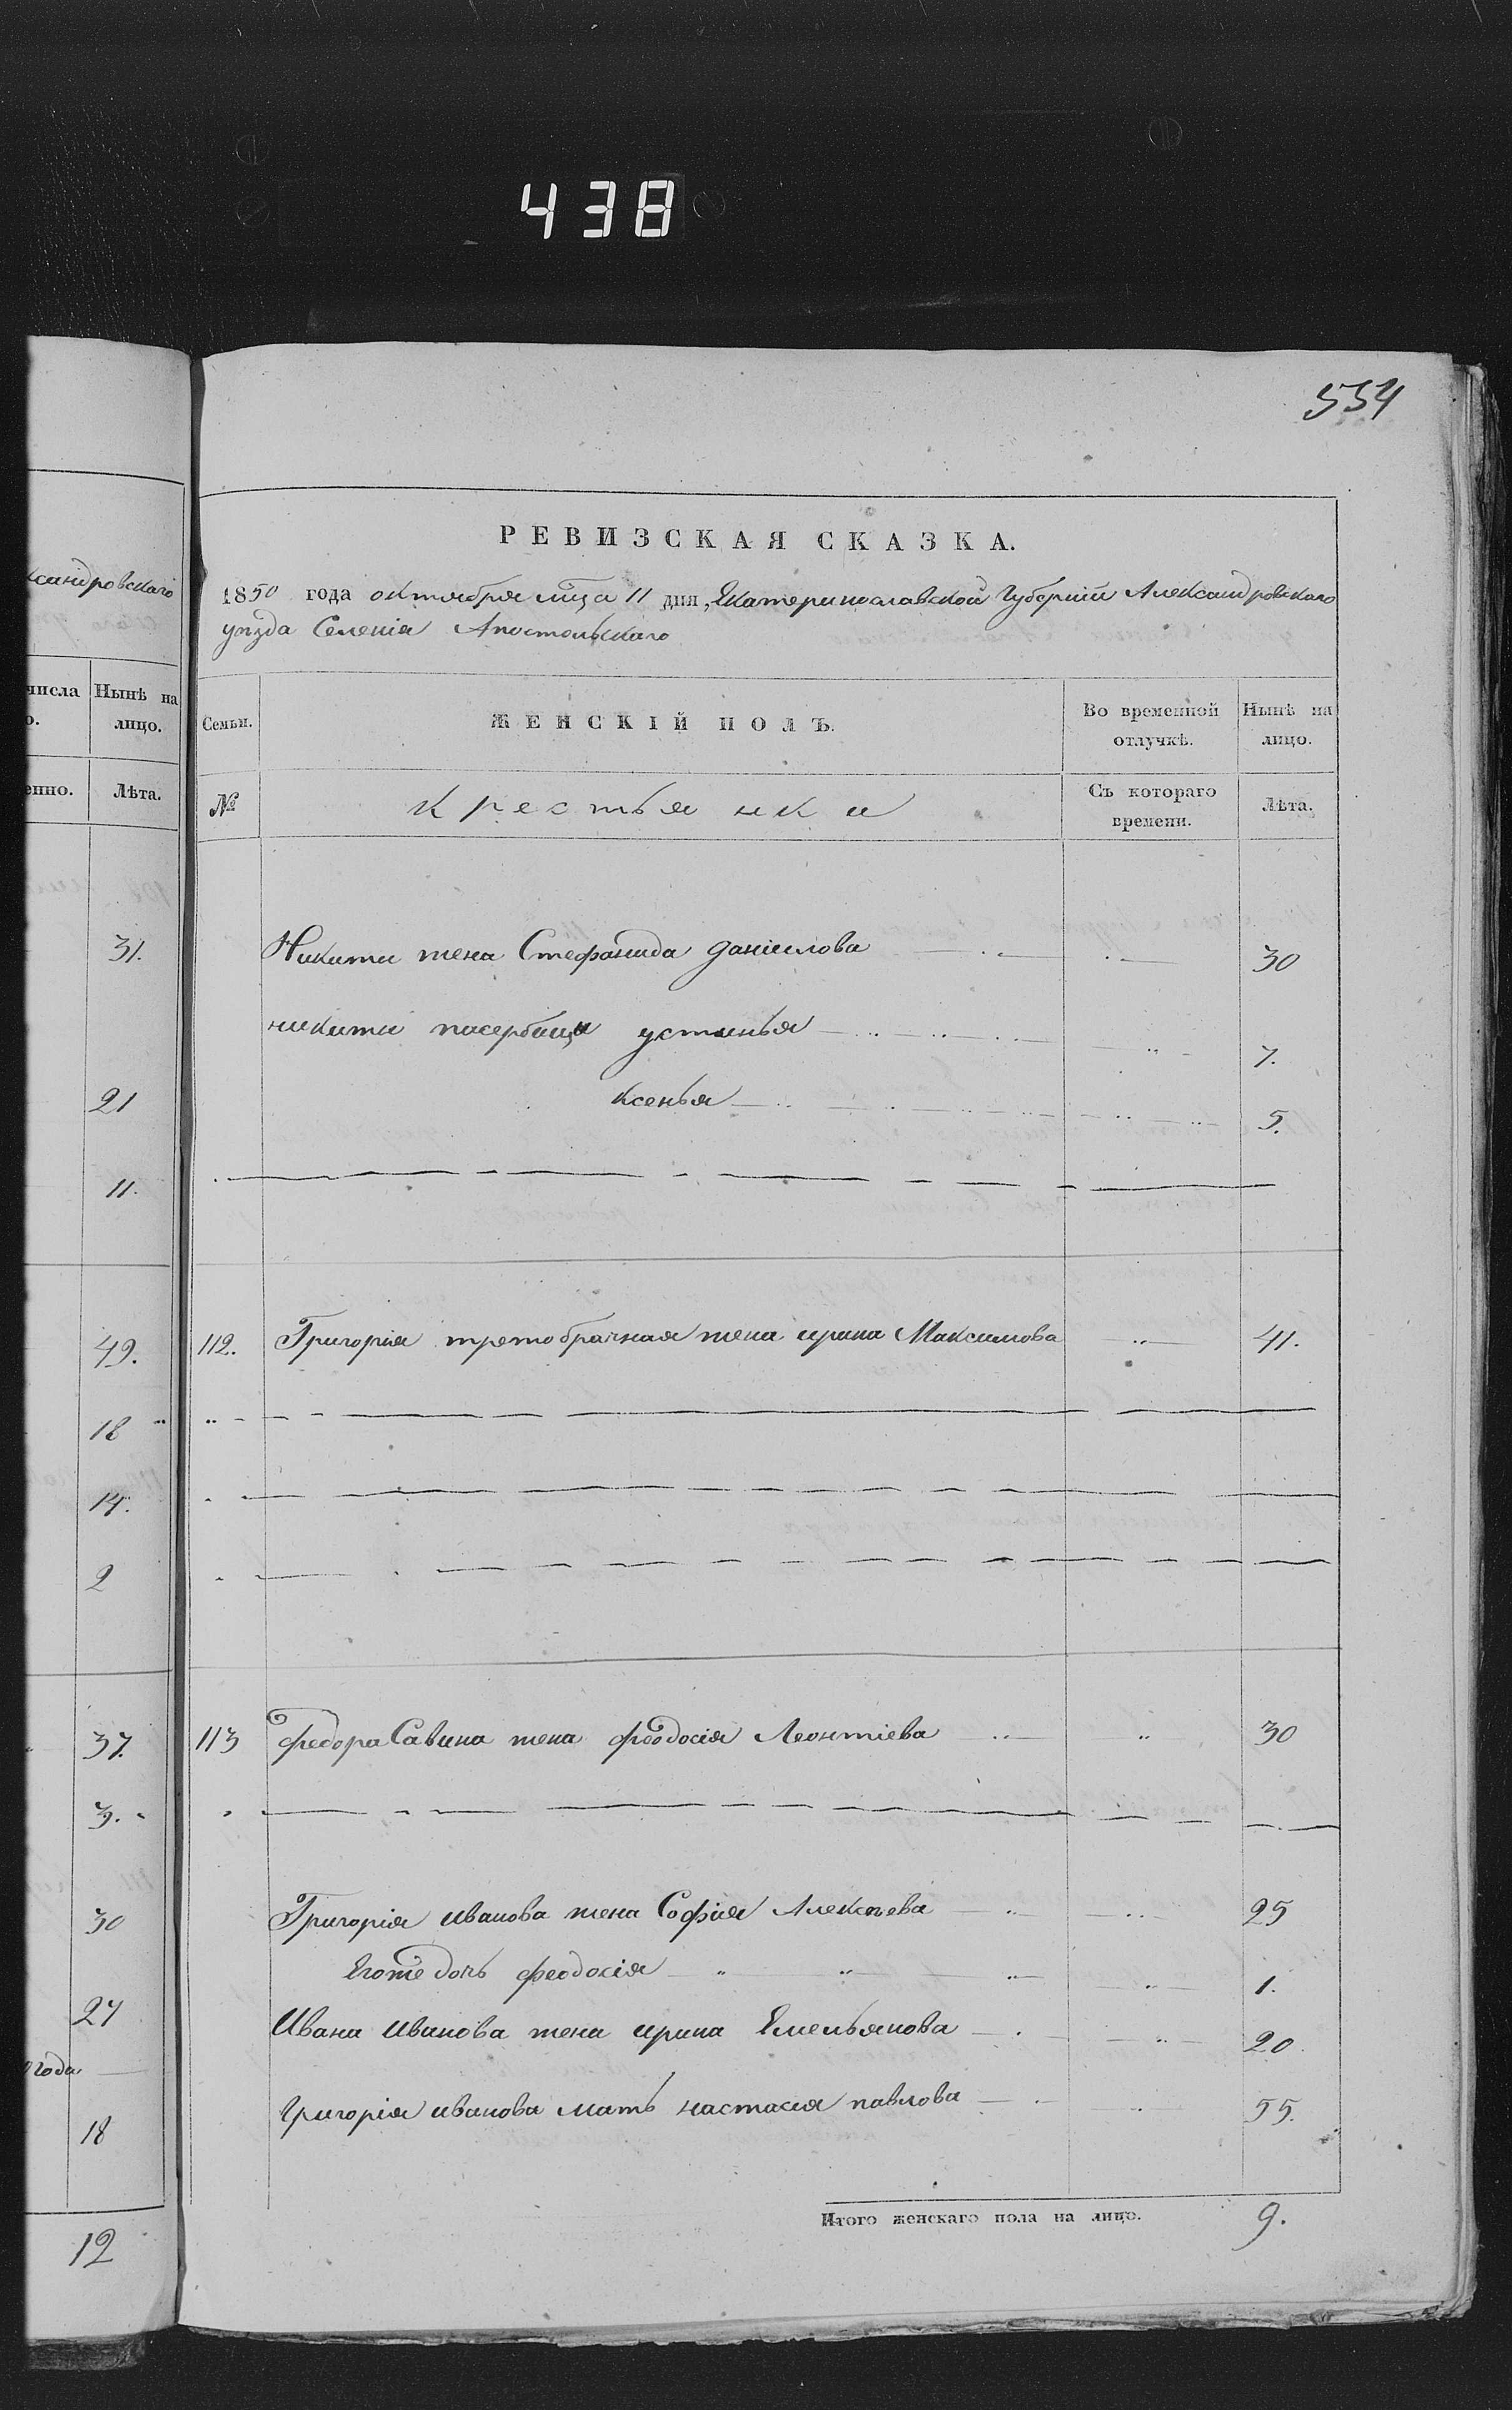 438
554
ксандровскаго
числа Нынѣ на
о. лицо.
енно. Лѣта.
31.
21
11.
49.
18
14.
2
37.
3.
30
27
года
18
12
РЕВИЗСКАЯ СКАЗКА.
1850 года октября мца 11 дня, Екатеринославской Губерніи Александровскаго
уѣзда Селенія Апостольскаго
Семьи. ЖЕНСКІЙ ПОЛЪ. Во временной отлучкѣ. Нынѣ на лицо.
№ Крестьянки Съ котораго времени. Лѣта.
Никиты жена Стефанида Даніилова 30
никиты пасербицы устинья 7.
ксенья 5.
112. Григорія третобрачная жена ирина Максимова 41.
113 федора Савина жена феодосія Леонтіева 30
Григорія иванова жена Софія Алексѣева 25
Егоже дочь феодосія 1.
Ивана Иванова жена ирина Емельянова 20.
Григорія иванова мать настасія павлова 55.
Итого женскаго пола на лицо. 9.